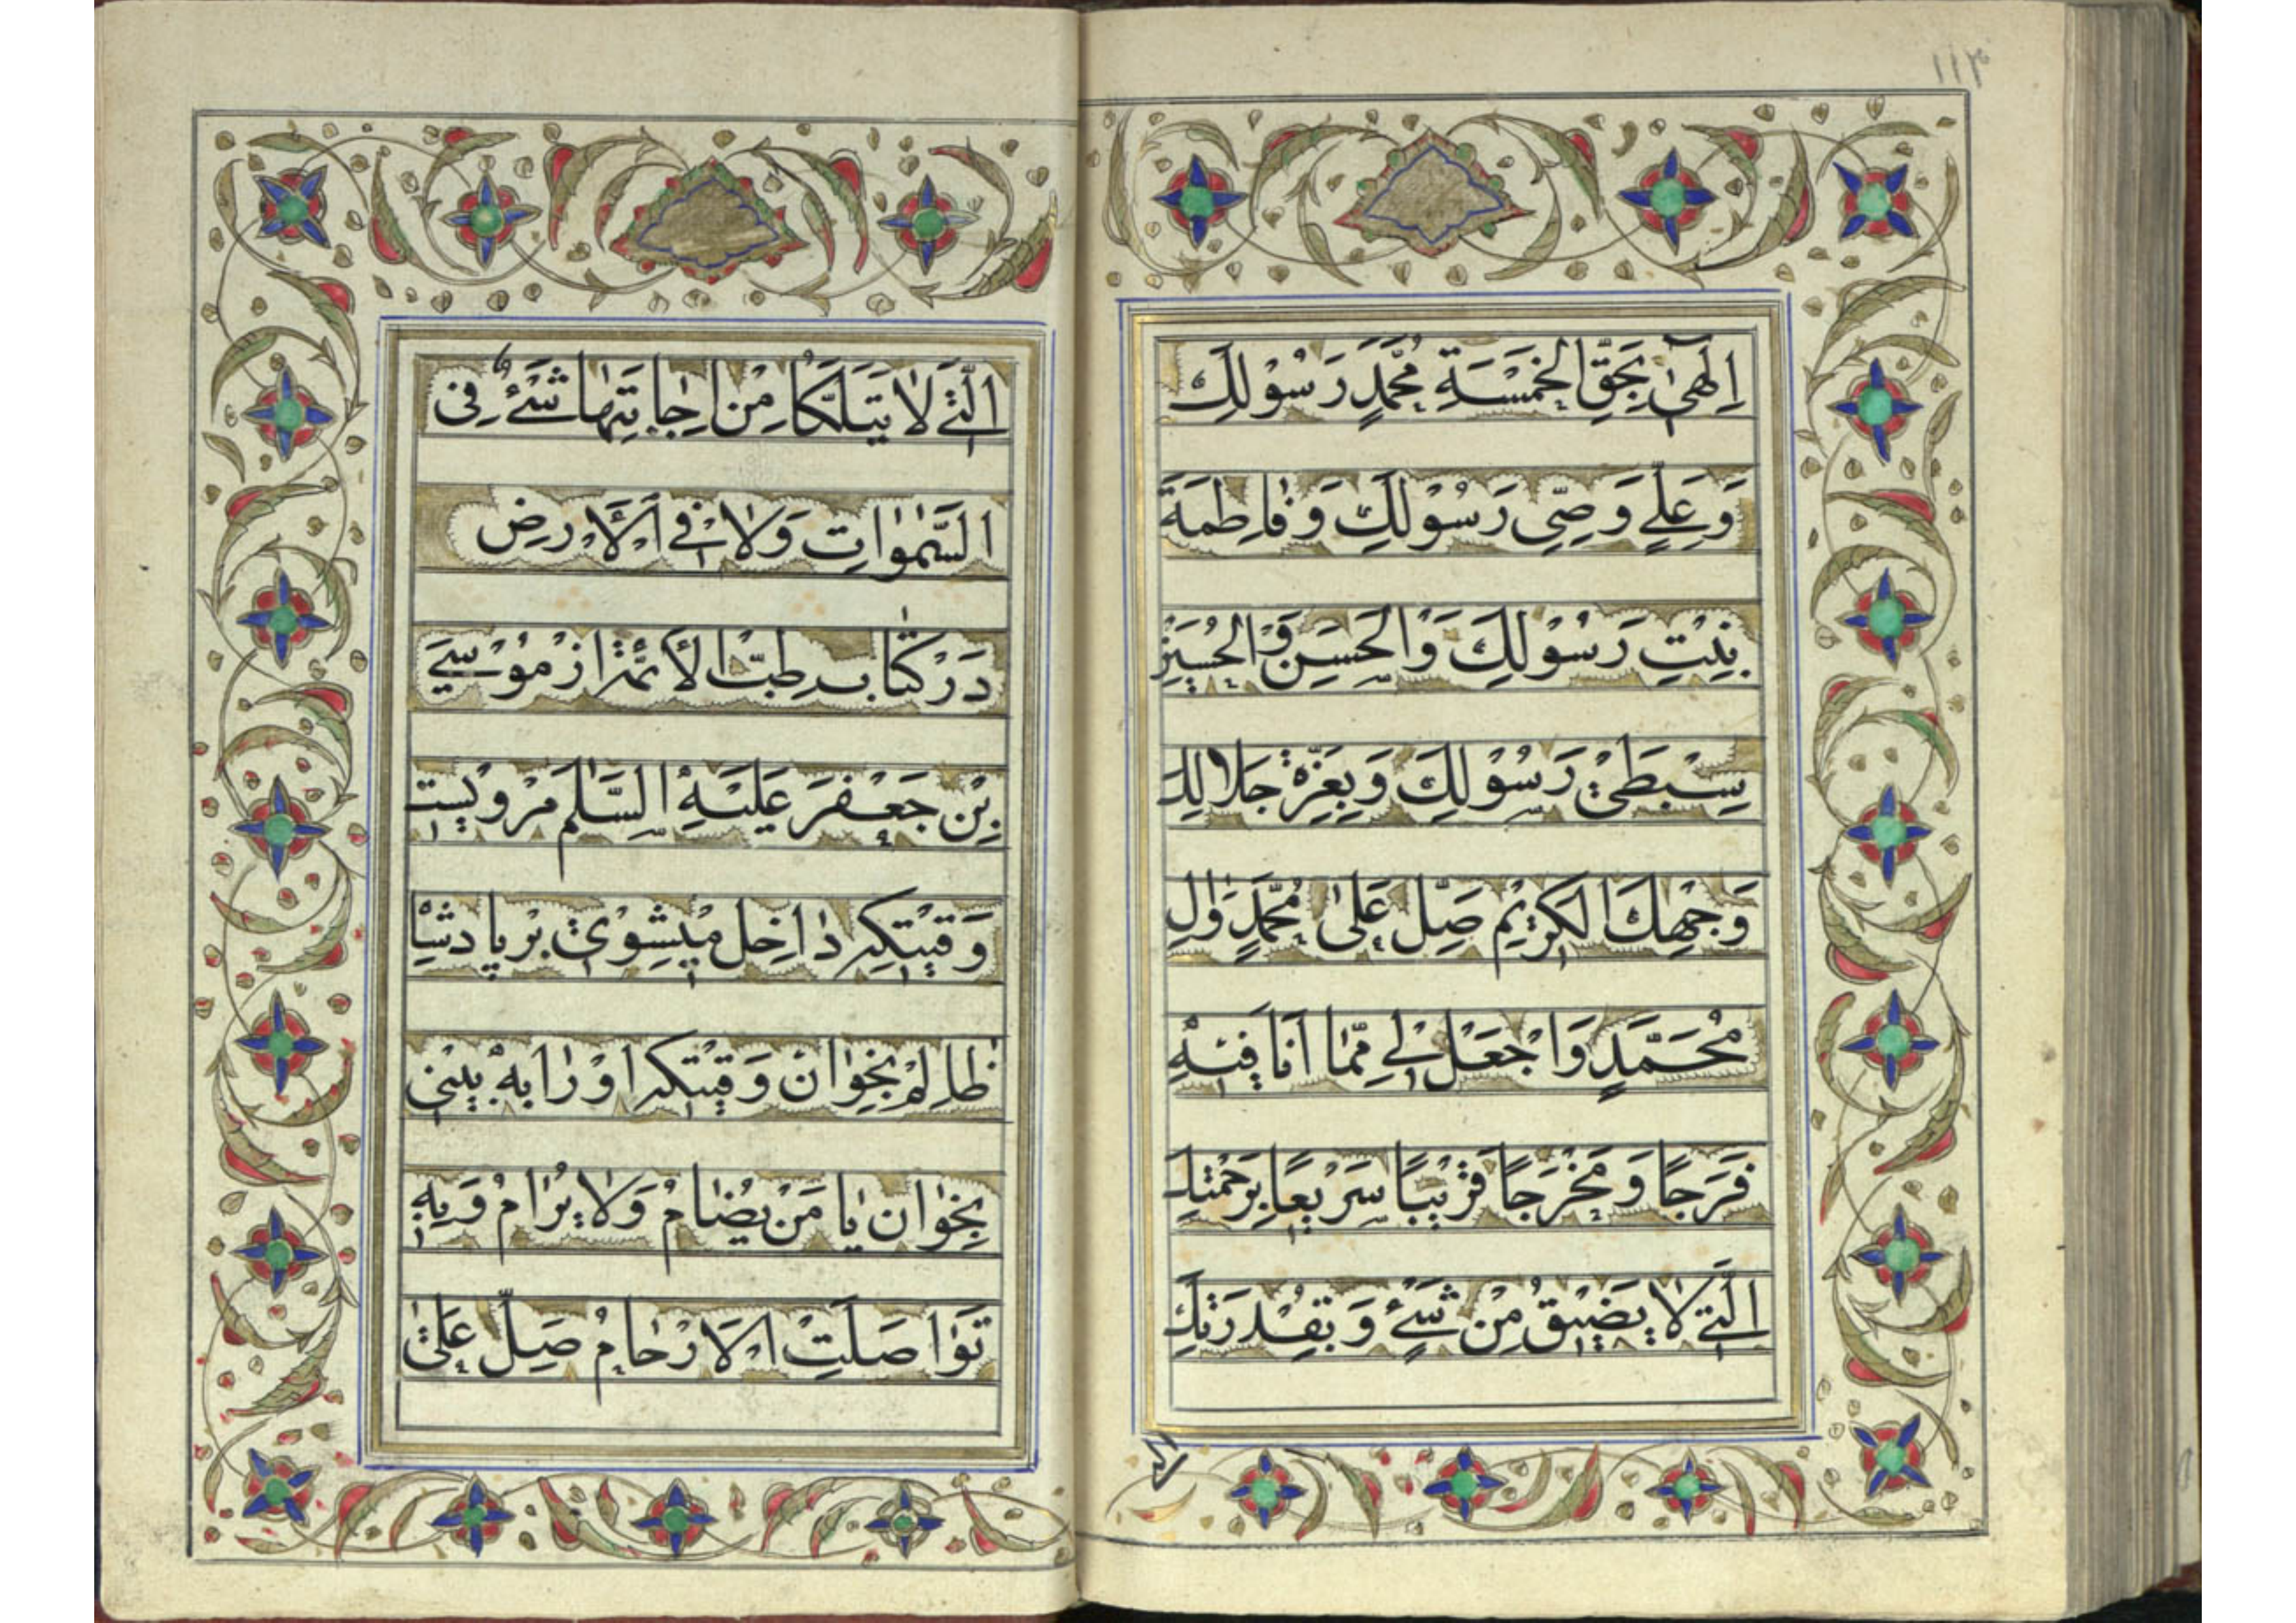 ۱۱۳
اِلٰهىٰ بِحَقِّ الخَمْسَةِ مُحَمَّدٍ رَسُوْلِكَ
وَعَلِيٍّ وَصِّىِ رَسُوْلِكَ وَفٰاطِمَةَ
بِنْتِ رَسُوْلِكَ وَالْحَسَنِ وَالْحُسَيْنِ
سِبْطَىْ رَسُوْلِكَ وَبِعِزَّةِ جَلالِكَ
وَجْهِكَ الكَرِيْمِ صَلِّ عَلىٰ مُحَمَّدٍ وَاٰلِ
مُحَمَّدٍ وَاجْعَلْ لِى مِمّٰا اَنَا فِيْهِ
فَرَجًا وَمَخْرَجًا قَرِيْبًا سَرِيْعًا بِرَحْمَتِكَ
الَّتِى لٰا يَضِيْقُ مِنْ شَىْءٍ وَبِقُدْرَتِكَ
الَّتِى
الَّتِى لٰا يَتَلَكَّا مِنْ اِجٰابَتِهٰا شَىْءٌ فِى
السَّمٰوٰاتِ وَلٰا فِى الْاَرْضِ
دَرْ كتٰاب طِبّ الأئمّه از مُوْسىٰ
بِنْ جَعْفَرَ عَلَيْهِ السَّلٰم مَرْويست
وَقتيكه دٰاخِل ميشوى بر پادشاه
ظٰالِمْ بخوٰان وَقتيكه او رٰا به بينى
بخوٰان يٰا مَنْ يُضٰامُ وَلٰا يُرٰامُ وَبِهِ
تَوٰاصَلَتِ الْاَرْحٰامُ صَلِّ عَلىٰ